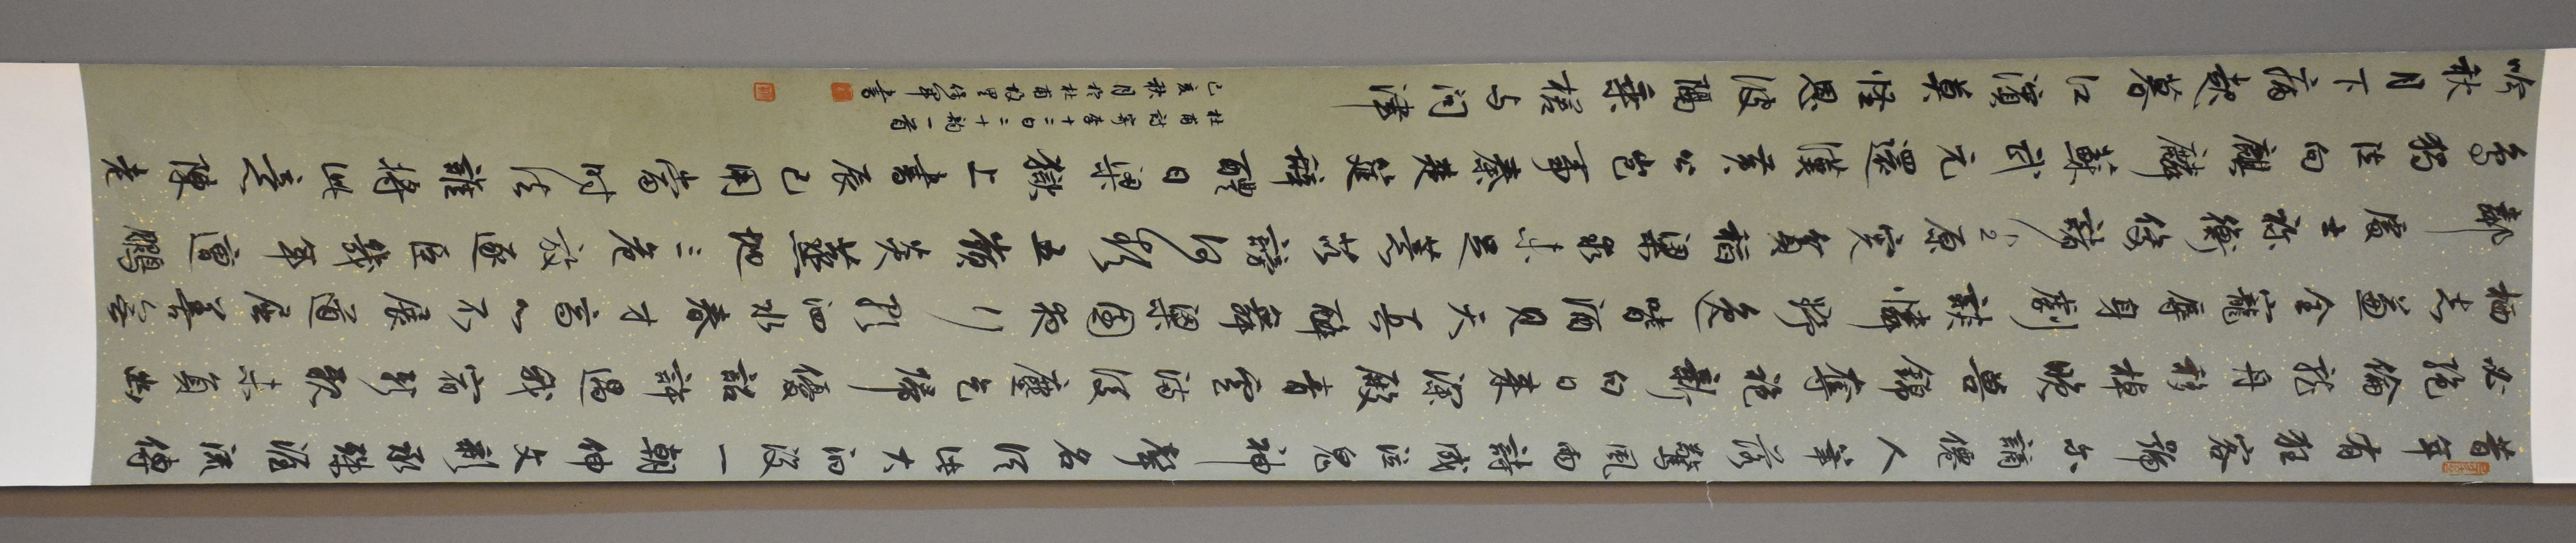 昔年有狂客號爾謫仙人筆落驚風雨詩成泣鬼神聲名從此大汩沒一朝伸文彩承殊渥流傳
必絕倫龍舟移棹晚獸錦奪袍新白日來深殿青雲滿後塵乞歸優詔許遇我宿心親未負幽
栖志兼全寵辱身劇談憐野逸嗜酒見天真醉舞梁園夜行歌泗水春才高心不展道屈善無
鄰處士禰衡俊諸生原憲貧稻粱求未足薏苡謗何頻五嶺炎蒸地三危放逐臣幾年遭鵩
鳥獨泣向麒麟蘇武元還漢黃公豈事秦楚筵辭醴日梁獄上書辰已用當時法誰將此義陳老
吟秋月下病起暮江濱莫怪恩波隔乘槎与問津
杜甫詩寄李十二白二十韻一首
己亥秋月於杜甫故里軍書